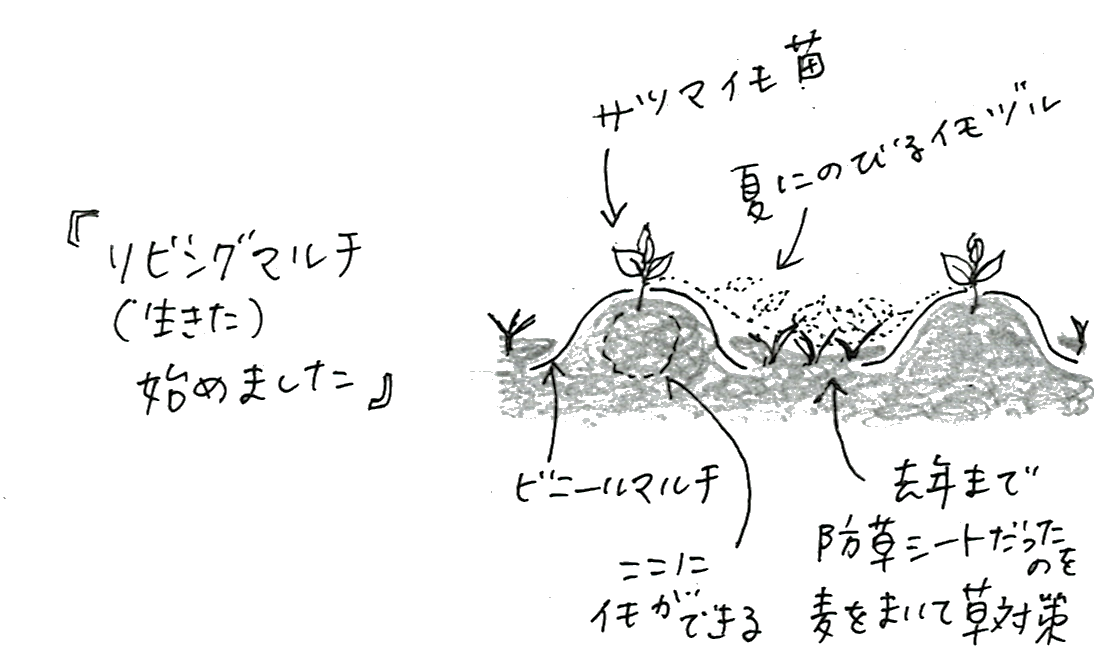 『リビングマルチ
(生きた)
始めました』
サツマイモ苗
夏にのびるイモヅル
ビニールマルチ
ここに
イモができる
去年まで
防草シートだった
のを
麦をまいて草対策